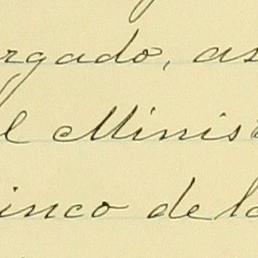 rgado, as
l Minis
inco de la